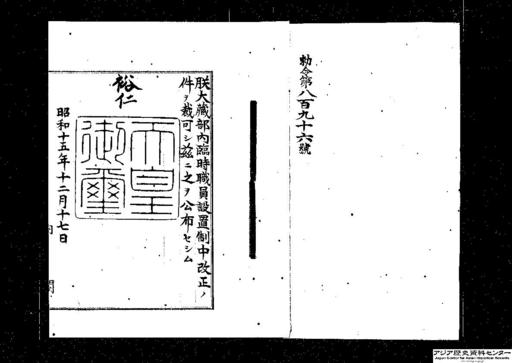 勅令第八百九十六號
朕大藏部內臨時職員設置制中改正ノ
件ヲ裁可シ茲ニ之ヲ公布セシム
裕仁
天皇
御璽
昭和十五年十二月十七日
內閣
アジア歴史資料センター
Japan Center for Asian Historical Records